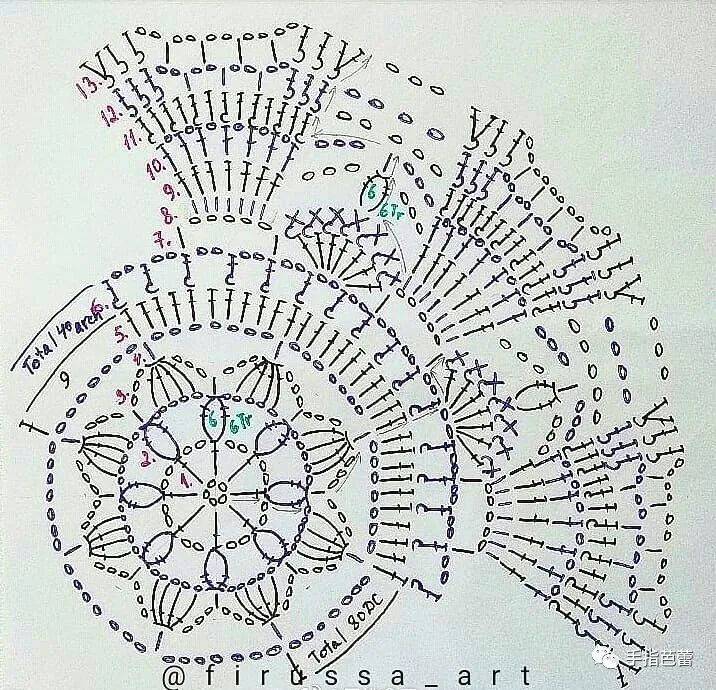 13.
12.
11.
10.
9.
8.
7.
6.
Total 40 arch
9
5.
4.
3.
2.
1.
6
6Tr
6
6Tr
Total 80DC
@firussa_art
手指芭蕾